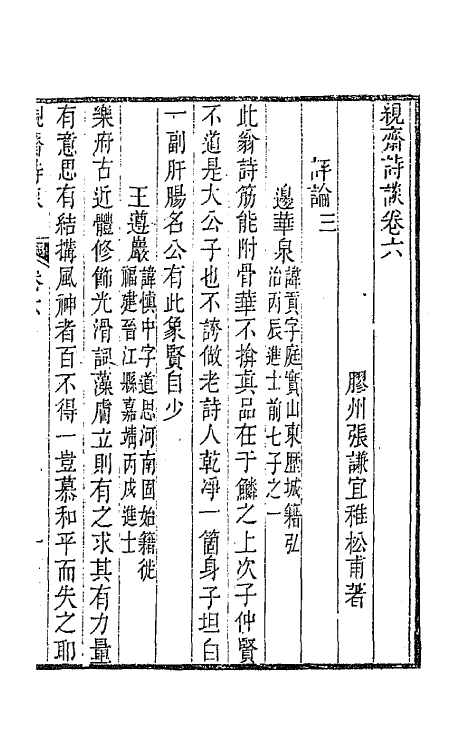 絸齋詩談卷六
膠州張謙宜稚松甫著
評論三
邊華泉
諱貢字庭實山東歷城籍弘
治丙辰進士前七子之一
此翁詩筋能附骨華不揜眞品在于鱗之上次子仲賢
不道是大公子也不誇做老詩人乾凈一箇身子坦白
一副肝腸名公有此象賢自少
王遵巖
諱慎中字道思河南固始籍徙
福建晉江縣嘉靖丙戌進士
樂府古近體修飾光滑詞藻膚立則有之求其有力量
有意思有結搆風神者百不得一豈慕和平而失之耶